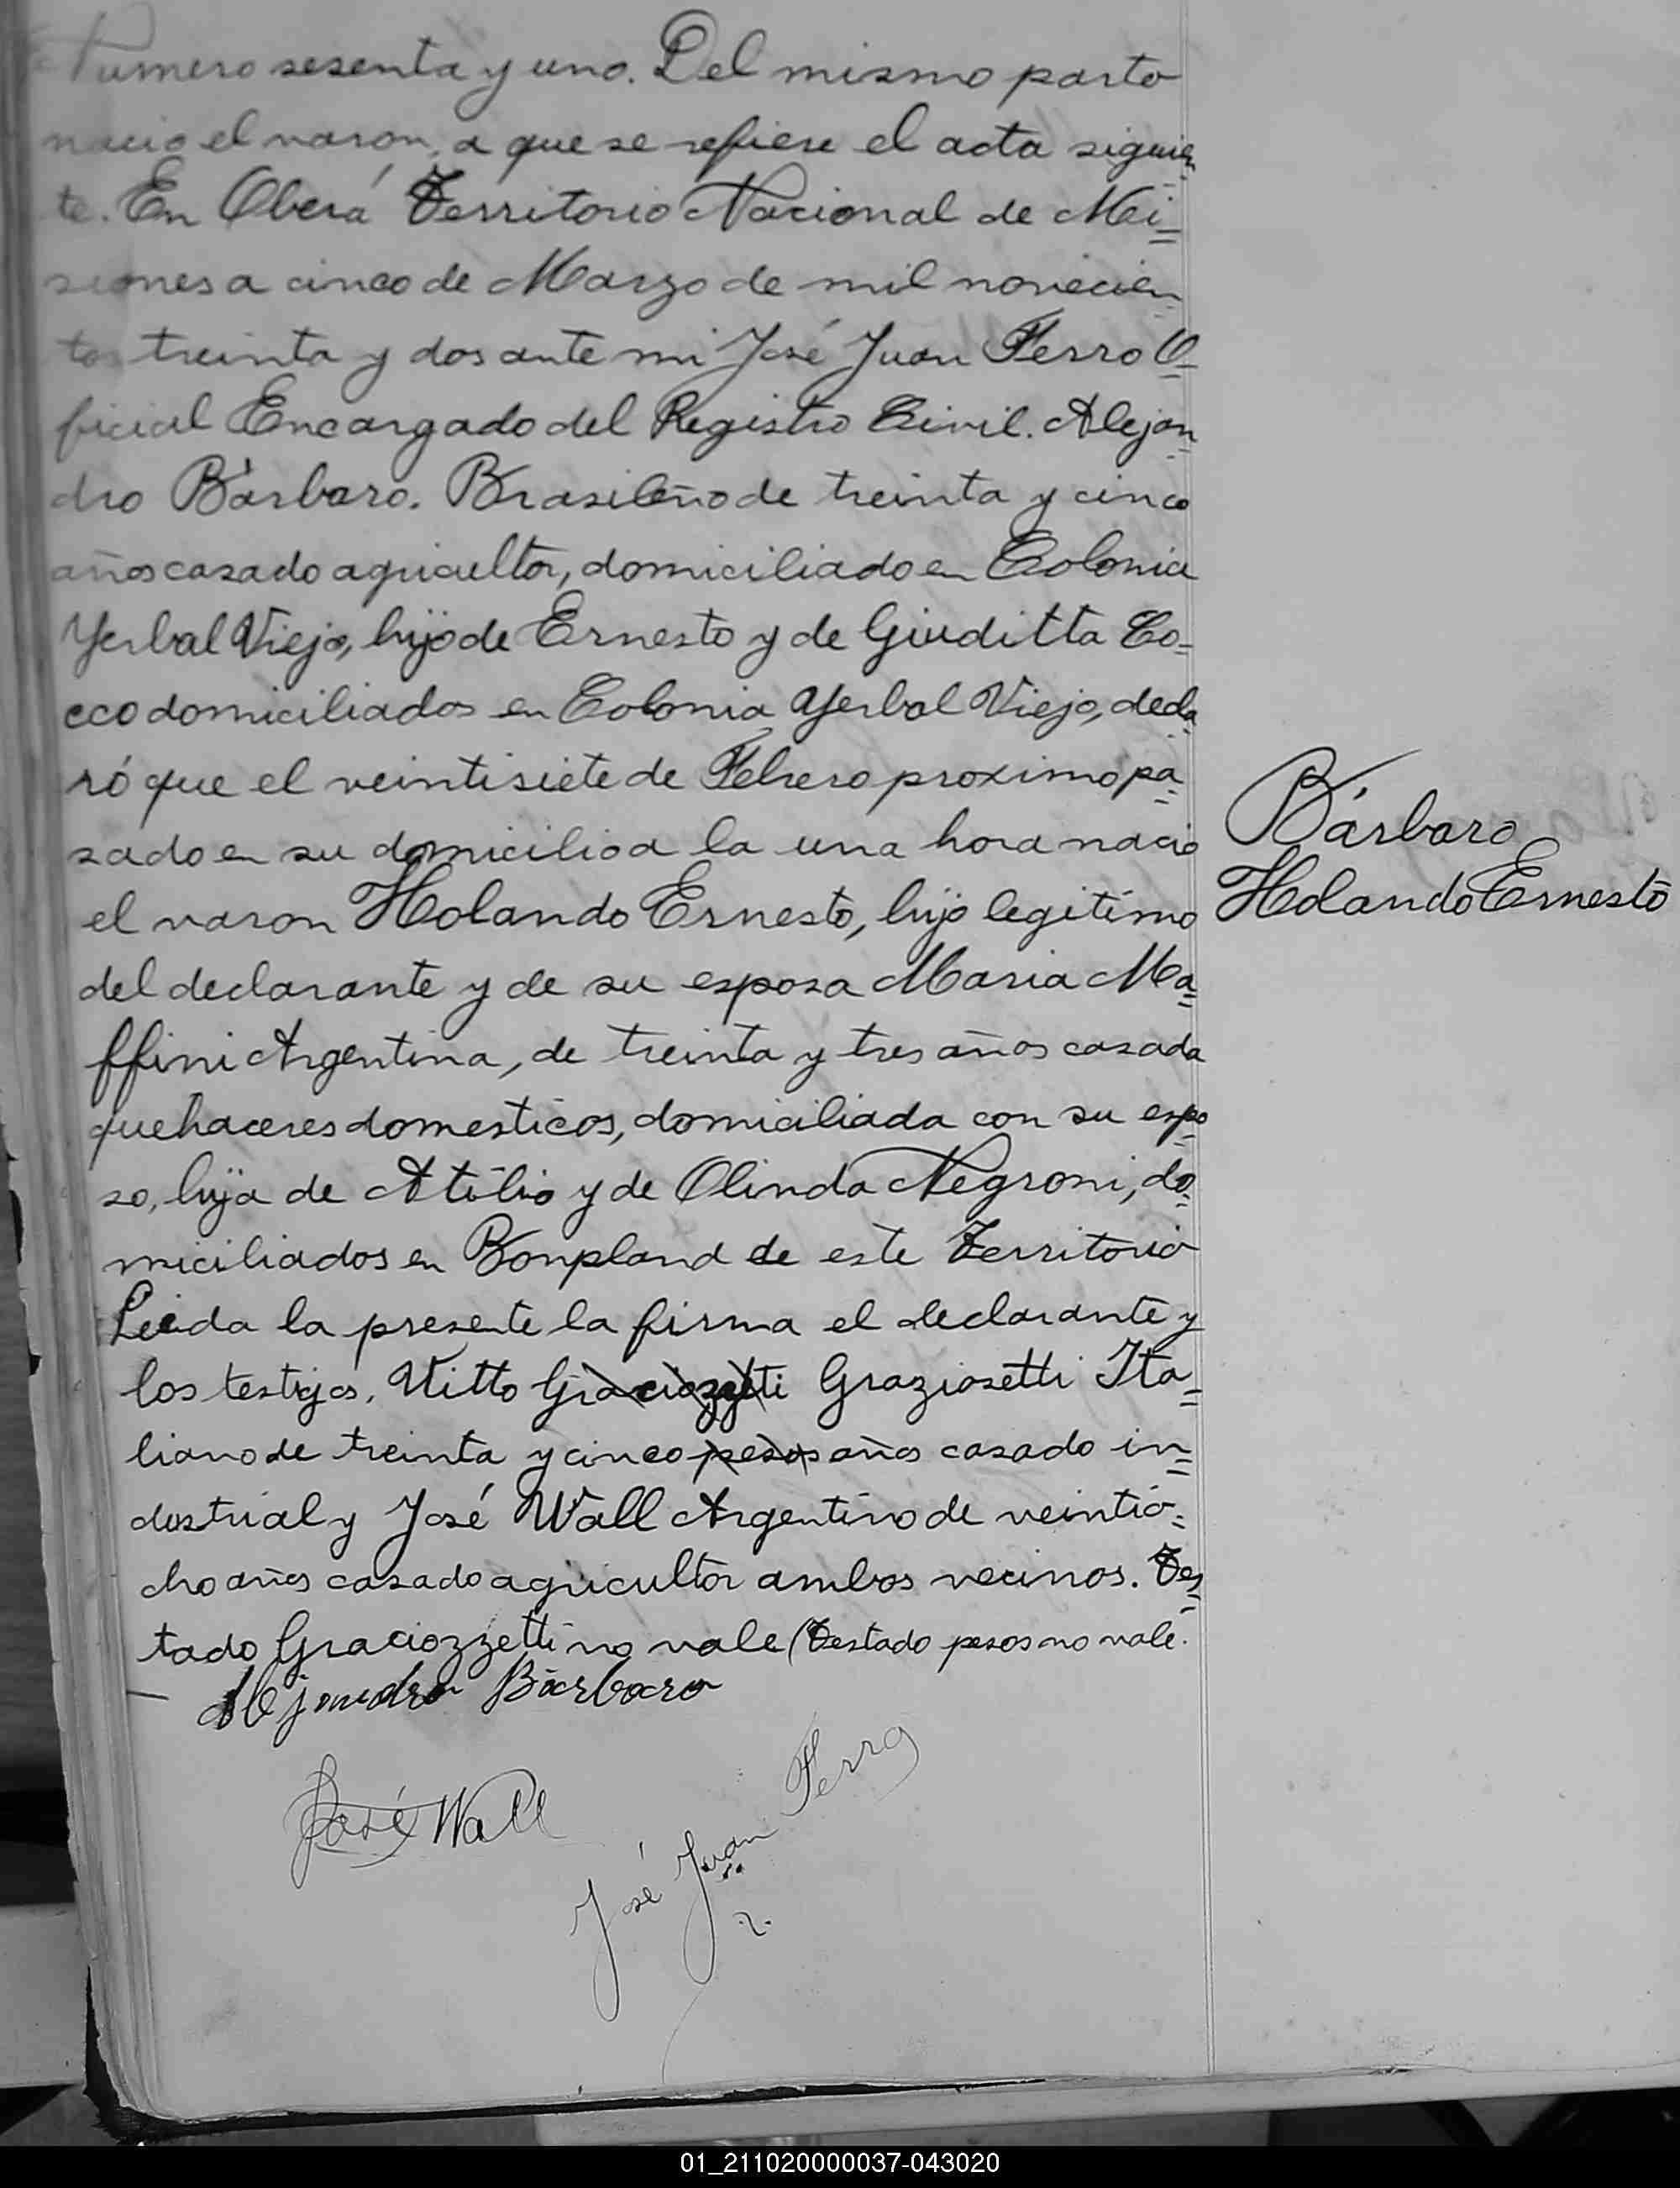 Numero sesenta y uno. Del mismo parto
nacio el varon, a que se refiere el acta siguien
te. En Oberá Territorio Nacional de Mi=
siones a cinco de Marzo de mil novecien
tos treinta y dos ante mi José Juan Ferro O=
ficial Encargado del Registro Civil. Alejan
dro Bárbaro. Brasileño de treinta y cinco
años casado agricultor, domiciliado en Colonia
Yerbal Viejo, hijo de Ernesto y de Giuditta Co=
cco domiciliados en Colonia Yerbal Viejo, decla
ró que el veintisiete de Febrero proximo pa=
sado en su domicilio a la una hora nacio
el varon Holando Ernesto, hijo legitimo
del declarante y de su esposa Maria Ma=
ffini Argentina, de treinta y tres años casada
quehaceres domesticos, domiciliada con su espo=
so, hija de Atilio y de Olinda Negroni, do=
miciliados en Bonpland de este Territorio
Leida la presente la firma el declarante y
los testigos, Vitto Graciozzetti Graziosetti Ita=
liano de treinta y cinco pesos años casado in=
dustrial y José Wall Argentino de veintio=
cho años casado agricultor ambos vecinos. Tes=
tado Graciozzetti no vale (Testado pesos no vale.
Alejandro Bárbaro
José Wall
José Juan Ferro
Bárbaro
Holando Ernesto
01_211020000037-043020